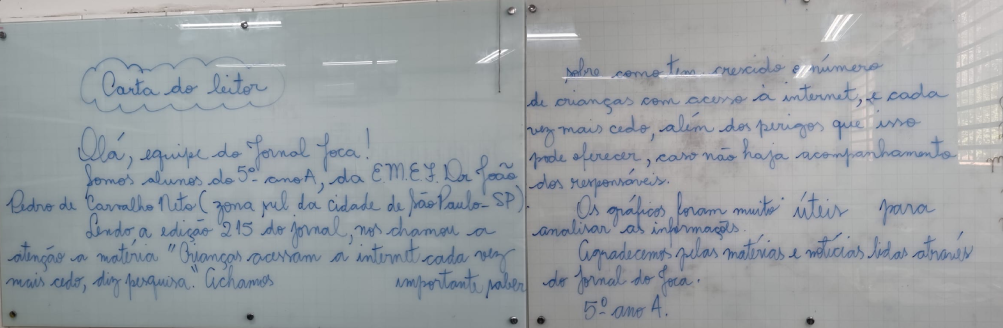 Carta do leitor
Olá, equipe do Jornal Joca!
Somos alunos do 5º ano A, da E.M.E.F. Dr João
Pedro de Carvalho Neto (zona sul da cidade de São Paulo-SP).
Lendo a edição 215 do jornal, nos chamou a
atenção a matéria "Crianças acessam a internet cada vez
mais cedo, diz pesquisa." Achamos importante saber
sobre como tem crescido o número
de crianças com acesso à internet, e cada
vez mais cedo, além dos perigos que isso
pode oferecer, caso não haja acompanhamento
dos responsáveis.
Os gráficos foram muito úteis para
analisar as informações.
Agradecemos pelas matérias e notícias lidas através
do Jornal do Joca.
5º ano A.